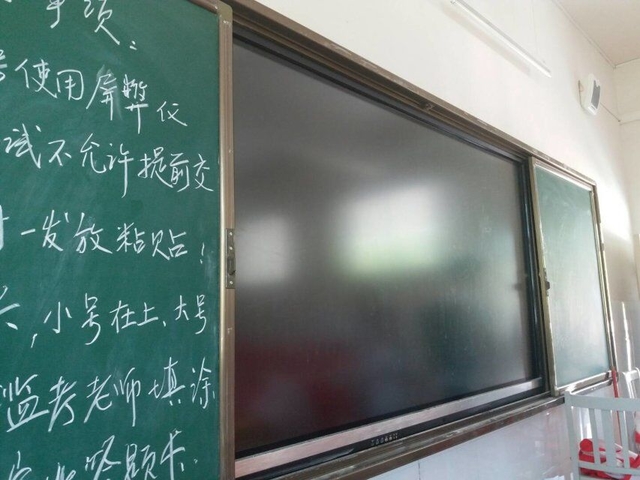 事项:
使用屏弊仪
试不允许提前交
一发放粘贴!
,小号在上、大号
监考老师填涂
答题卡.